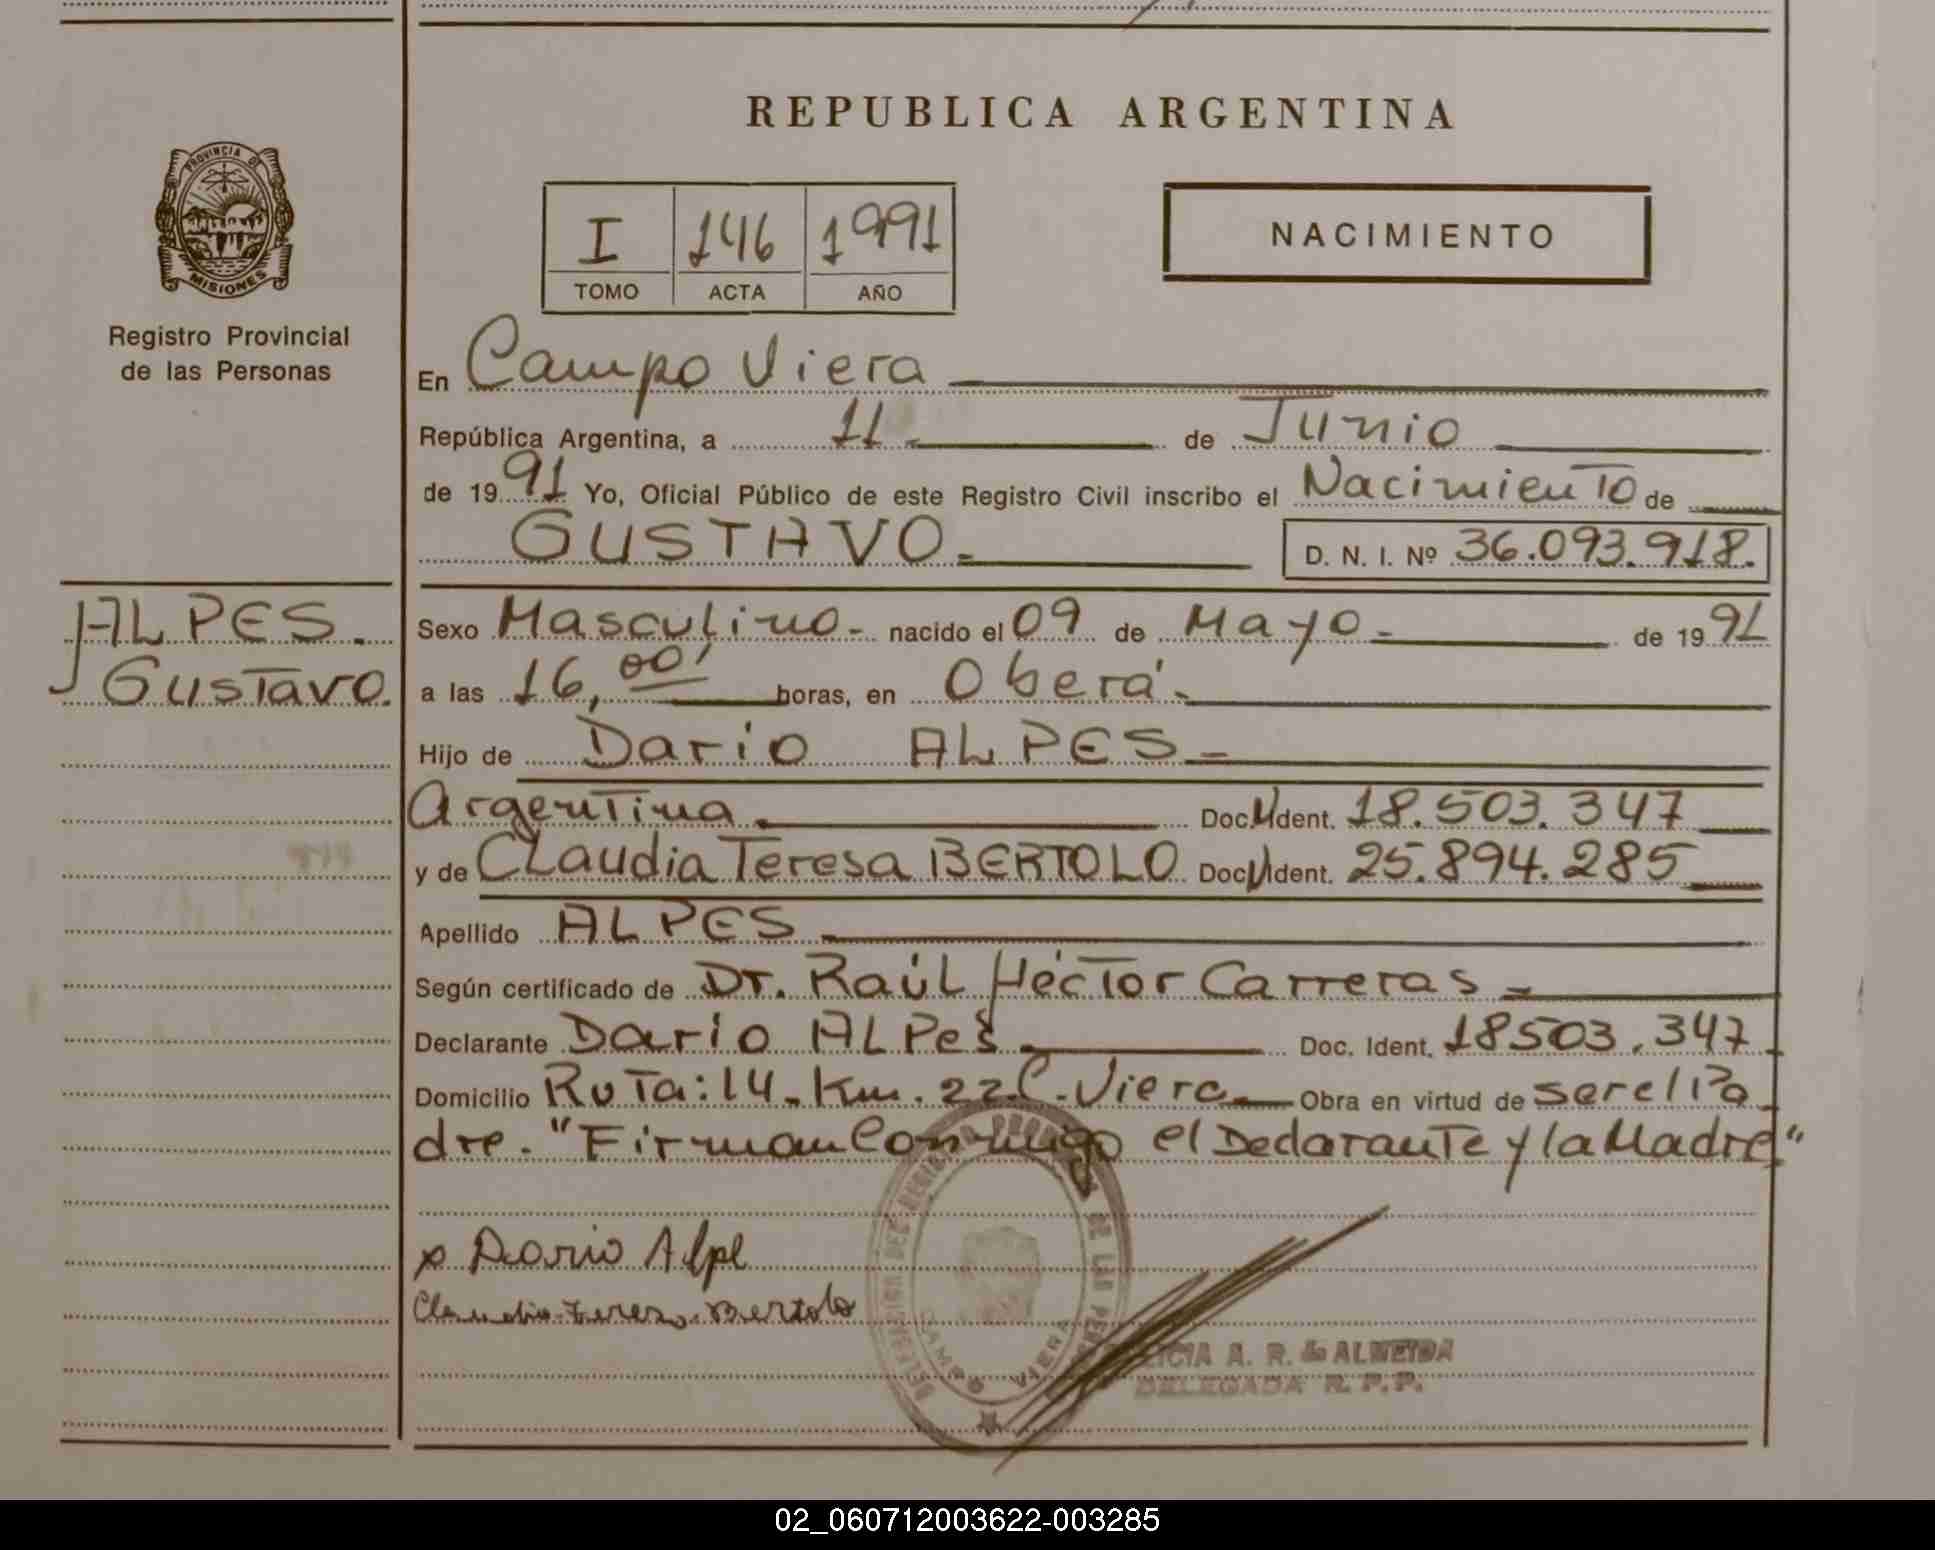 REPUBLICA ARGENTINA
PROVINCIA DE
MISIONES
Registro Provincial
de las Personas
I 146 1991
TOMO ACTA AÑO
NACIMIENTO
En Campo Viera
República Argentina, a 11 de Junio
de 1991 Yo, Oficial Público de este Registro Civil inscribo el Nacimiento de
GUSTAVO.
D. N. I. Nº 36.093.918.
ALPES.
Gustavo.
Sexo Masculino. nacido el 09 de Mayo de 1991
a las 16,00' horas, en Oberá.
Hijo de Dario ALPES
Argentina. Doc. Ident. 18.503.347
y de Claudia Teresa BERTOLO Doc. Ident. 25.894.285
Apellido ALPES
Según certificado de Dr. Raúl Héctor Carreras
Declarante Dario ALPes Doc. Ident. 18503.347
Domicilio Ruta:14. Km. 22 C. Viera Obra en virtud de ser el Pa
dre. "Firman Conmigo el Declarante y la Madre"
x Dario Alpe
Claudia Teresa Bertolo
CAMPO VIERA
A. R. de ALMEIDA
DELEGADA R. P. P.
02_060712003622-003285